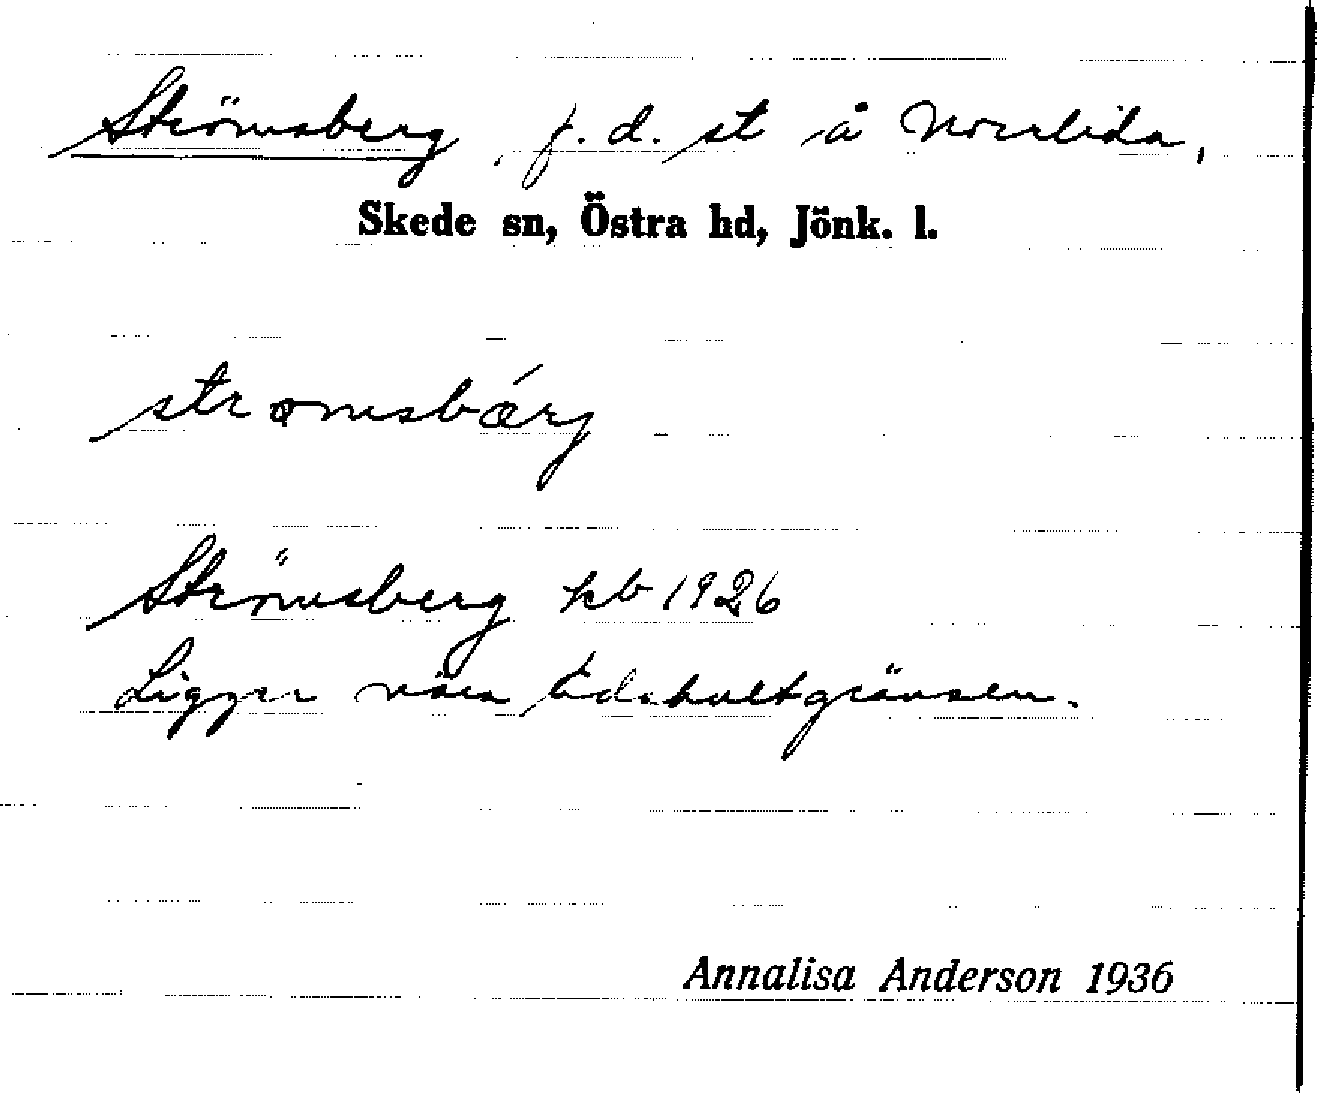 Strömsberg, f. d. st å Norrlida,
Skede sn, Östra hd, Jönk. l.
strömsbærg
Strömsberg kb 1926
Ligger nära Ädshultgränsen.
Annalisa Anderson 1936